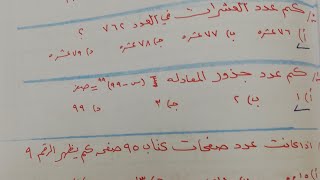 كم عدد العشرات في العدد ٧٦٢ ؟
أ) ٧٦ عشره ب) ٧٧ عشره ج) ٧٨ عشره د) ٧٩ عشره
كم عدد جذور المعادله (س-٩٩)^٩٩ = صفر
أ) ١ ب) ٢ ج) ٣ د) ٩٩
اذا كانت عدد صفحات كتاب ٩٥ صفحه كم يظهر الرقم ٩